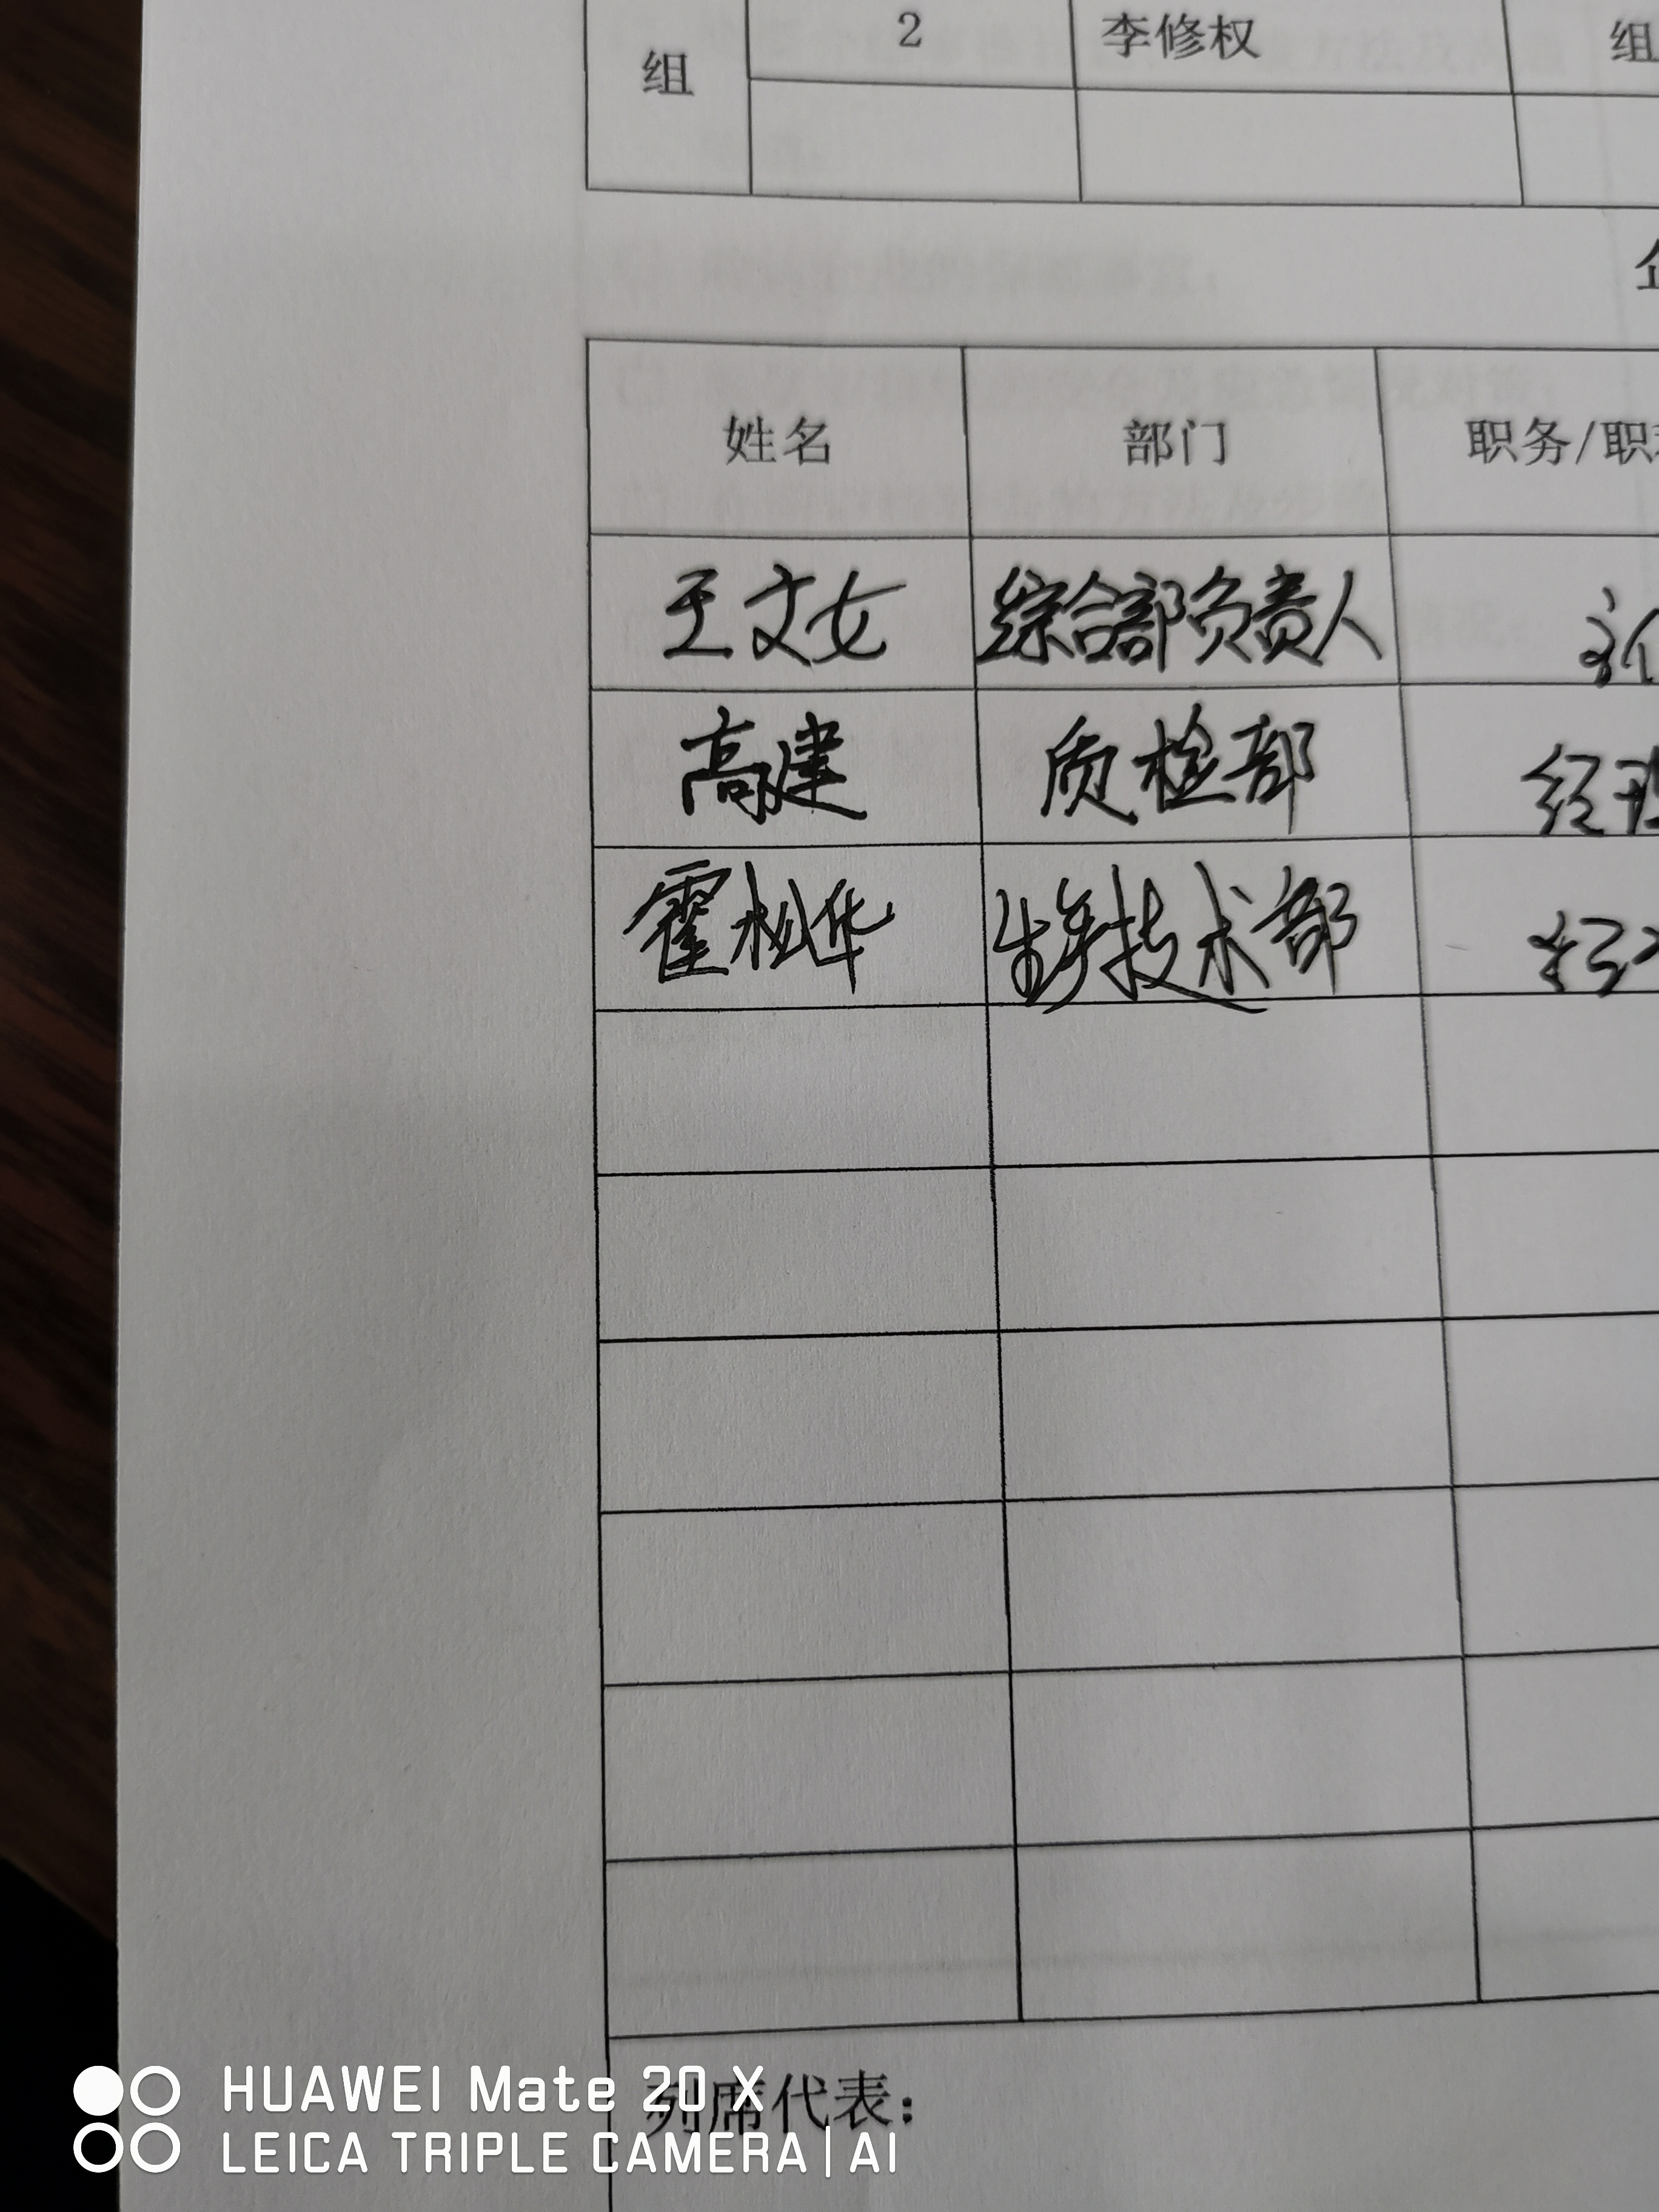 组 2 李修权 组
企
姓名 部门 职务/职称
王文女 综合部负责人
高建 质检部 经理
霍松华 生产技术部 经
列席代表：
HUAWEI Mate 20 X
LEICA TRIPLE CAMERA | AI